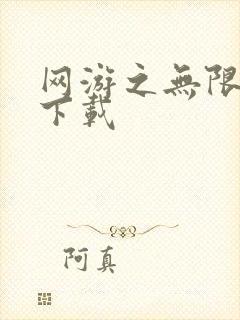 网游之無限
下載
阿真